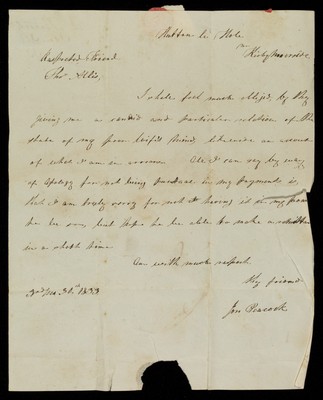 Hutton le Hole
Nr Kirby Moorside,
Respected Friend
Thos Allis,
I shall feel much obliged, by thy
giving me a candid and particular relation of the
state of my poor friend, likewise an account
of what I am in arrears. All I can say by way
of Apology for not being punctual in my payments is,
that I am very sorry for not having it in my power
to be so, but hope to be able to make a
in a short time.
I am with much respect,
thy friend
Jno Peacock
3rd mo 31st 1833